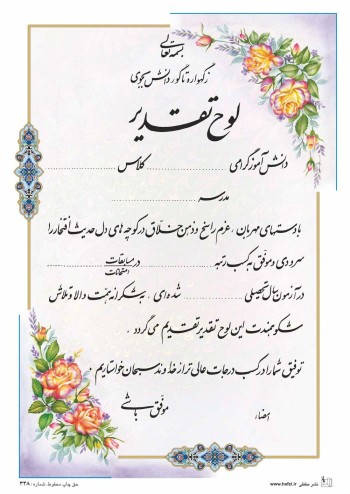 بسمه تعالی
ز گهواره تا گور دانش بجوی
لوح تقدیر
دانش آموز گرامی ........................ کلاس ................
مدرسه ........................
با دستهای مهربان ، عزم راسخ و ذهن خلاق در کوچه های دل حدیث افتخار را
سرودی و موفق به کسب رتبه ........................ در مسابقات
امتحانات
در آزمون سال تحصیلی ................ شده ای ، به شکرانه همت والا و تلاش
شکوهمندت این لوح تقدیر تقدیم می گردد .
توفیق شما را در کسب درجات عالی تر از خداوند سبحان خواستاریم .
موفق باشی
امضاء
حق چاپ محفوظ. شماره: ۳۳۸
www.hafzi.ir نشر حافظی